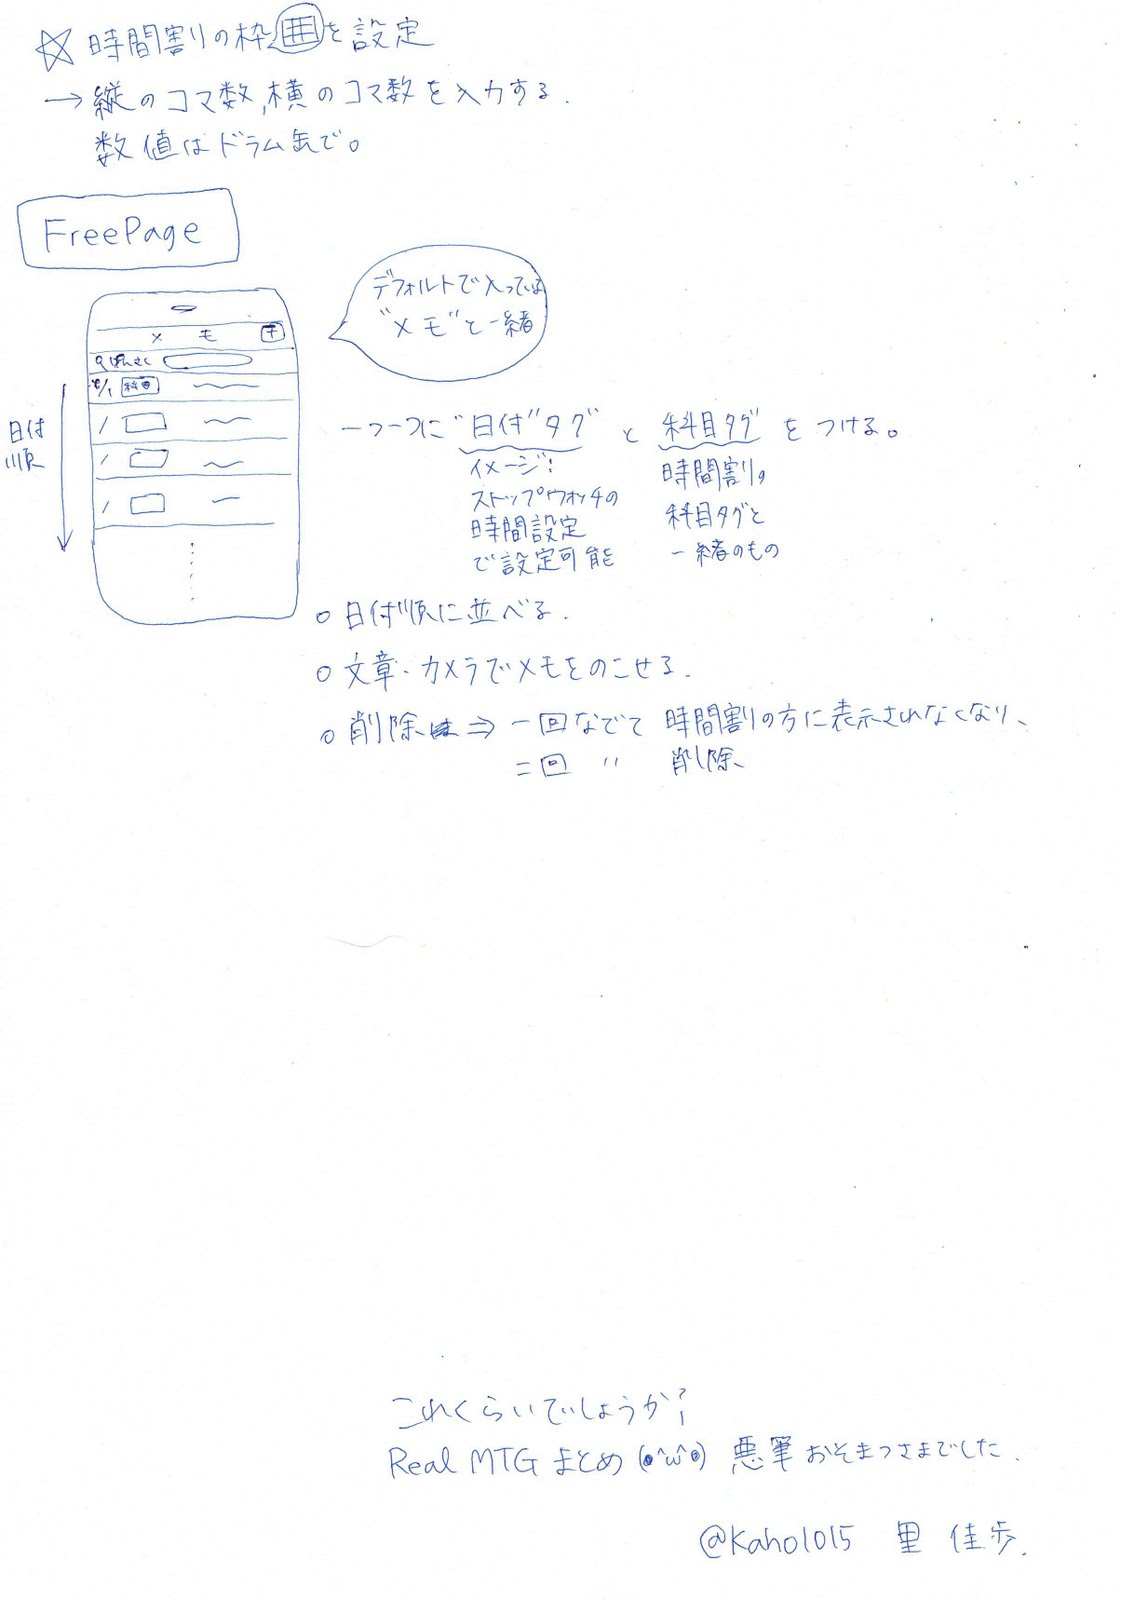 ☆時間割りの枠を設定
→縦のコマ数、横のコマ数を入力する.
数値はドラム缶で。
FreePage
デフォルトで入っている
"メモ"と一緒
メモ +
けんさく
科目
日付
順
一つ一つに"日付"タグ と 科目タグ をつける。
イメージ:
ストップウォッチの
時間設定
で設定可能
時間割りの
科目タグと
一緒のもの
○日付順に並べる.
○文章・カメラでメモをのこせる.
○削除は⇒一回なでて 時間割りの方に表示されなくなり、
二回 〃 削除、
これくらいでしょうか?
Real MTG まとめ (●^ω^●) 悪筆おそまつさまでした.
@Kaho1015 里 佳歩.